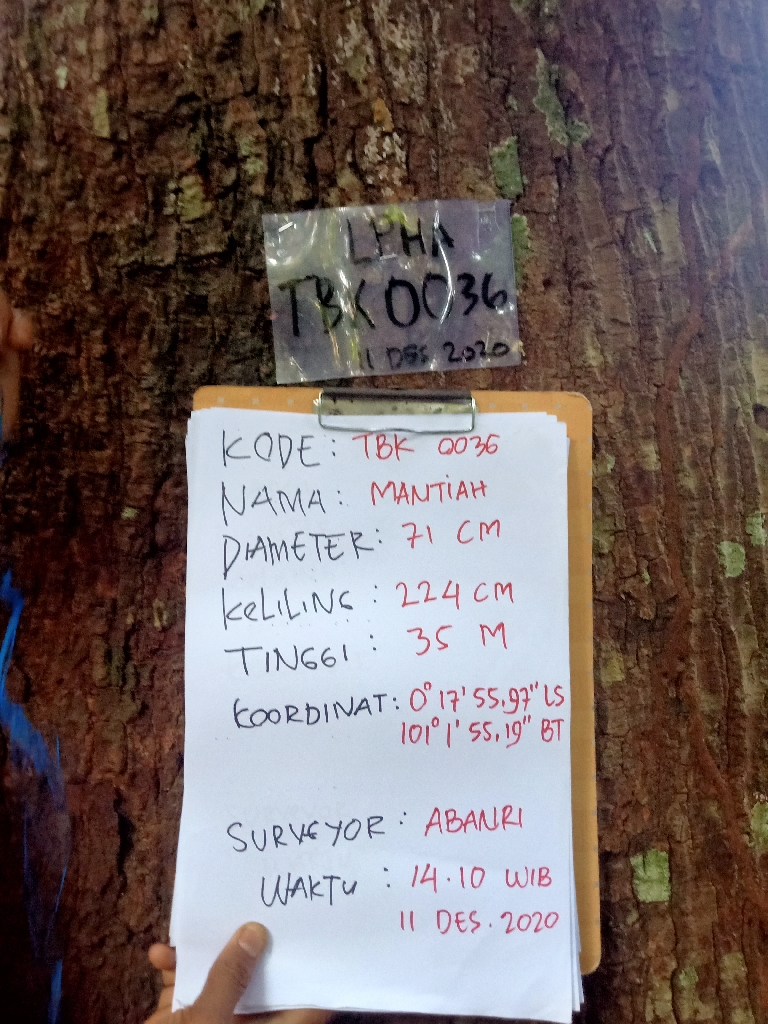 LPHA
TBK 0036
11 DES 2020
KODE : TBK 0036
NAMA : MANTIAH
DIAMETER : 71 CM
KELILING : 224 CM
TINGGI : 35 M
KOORDINAT : 0° 17' 55,97" LS
101° 1' 55,19" BT
SURVEYOR : ABANRI
WAKTU : 14.10 WIB
11 DES. 2020